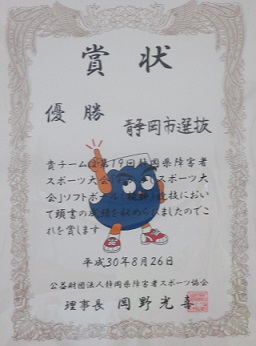 賞状
優勝
静岡市選抜
貴チームは第19回静岡県障害者
スポーツ大会「 スポーツ大
会」ソフトボール 競技におい
て頭書の成績を収められましたのでこ
れを賞します
平成30年8月26日
公益財団法人静岡県障害者スポーツ協会
理事長 岡野光喜